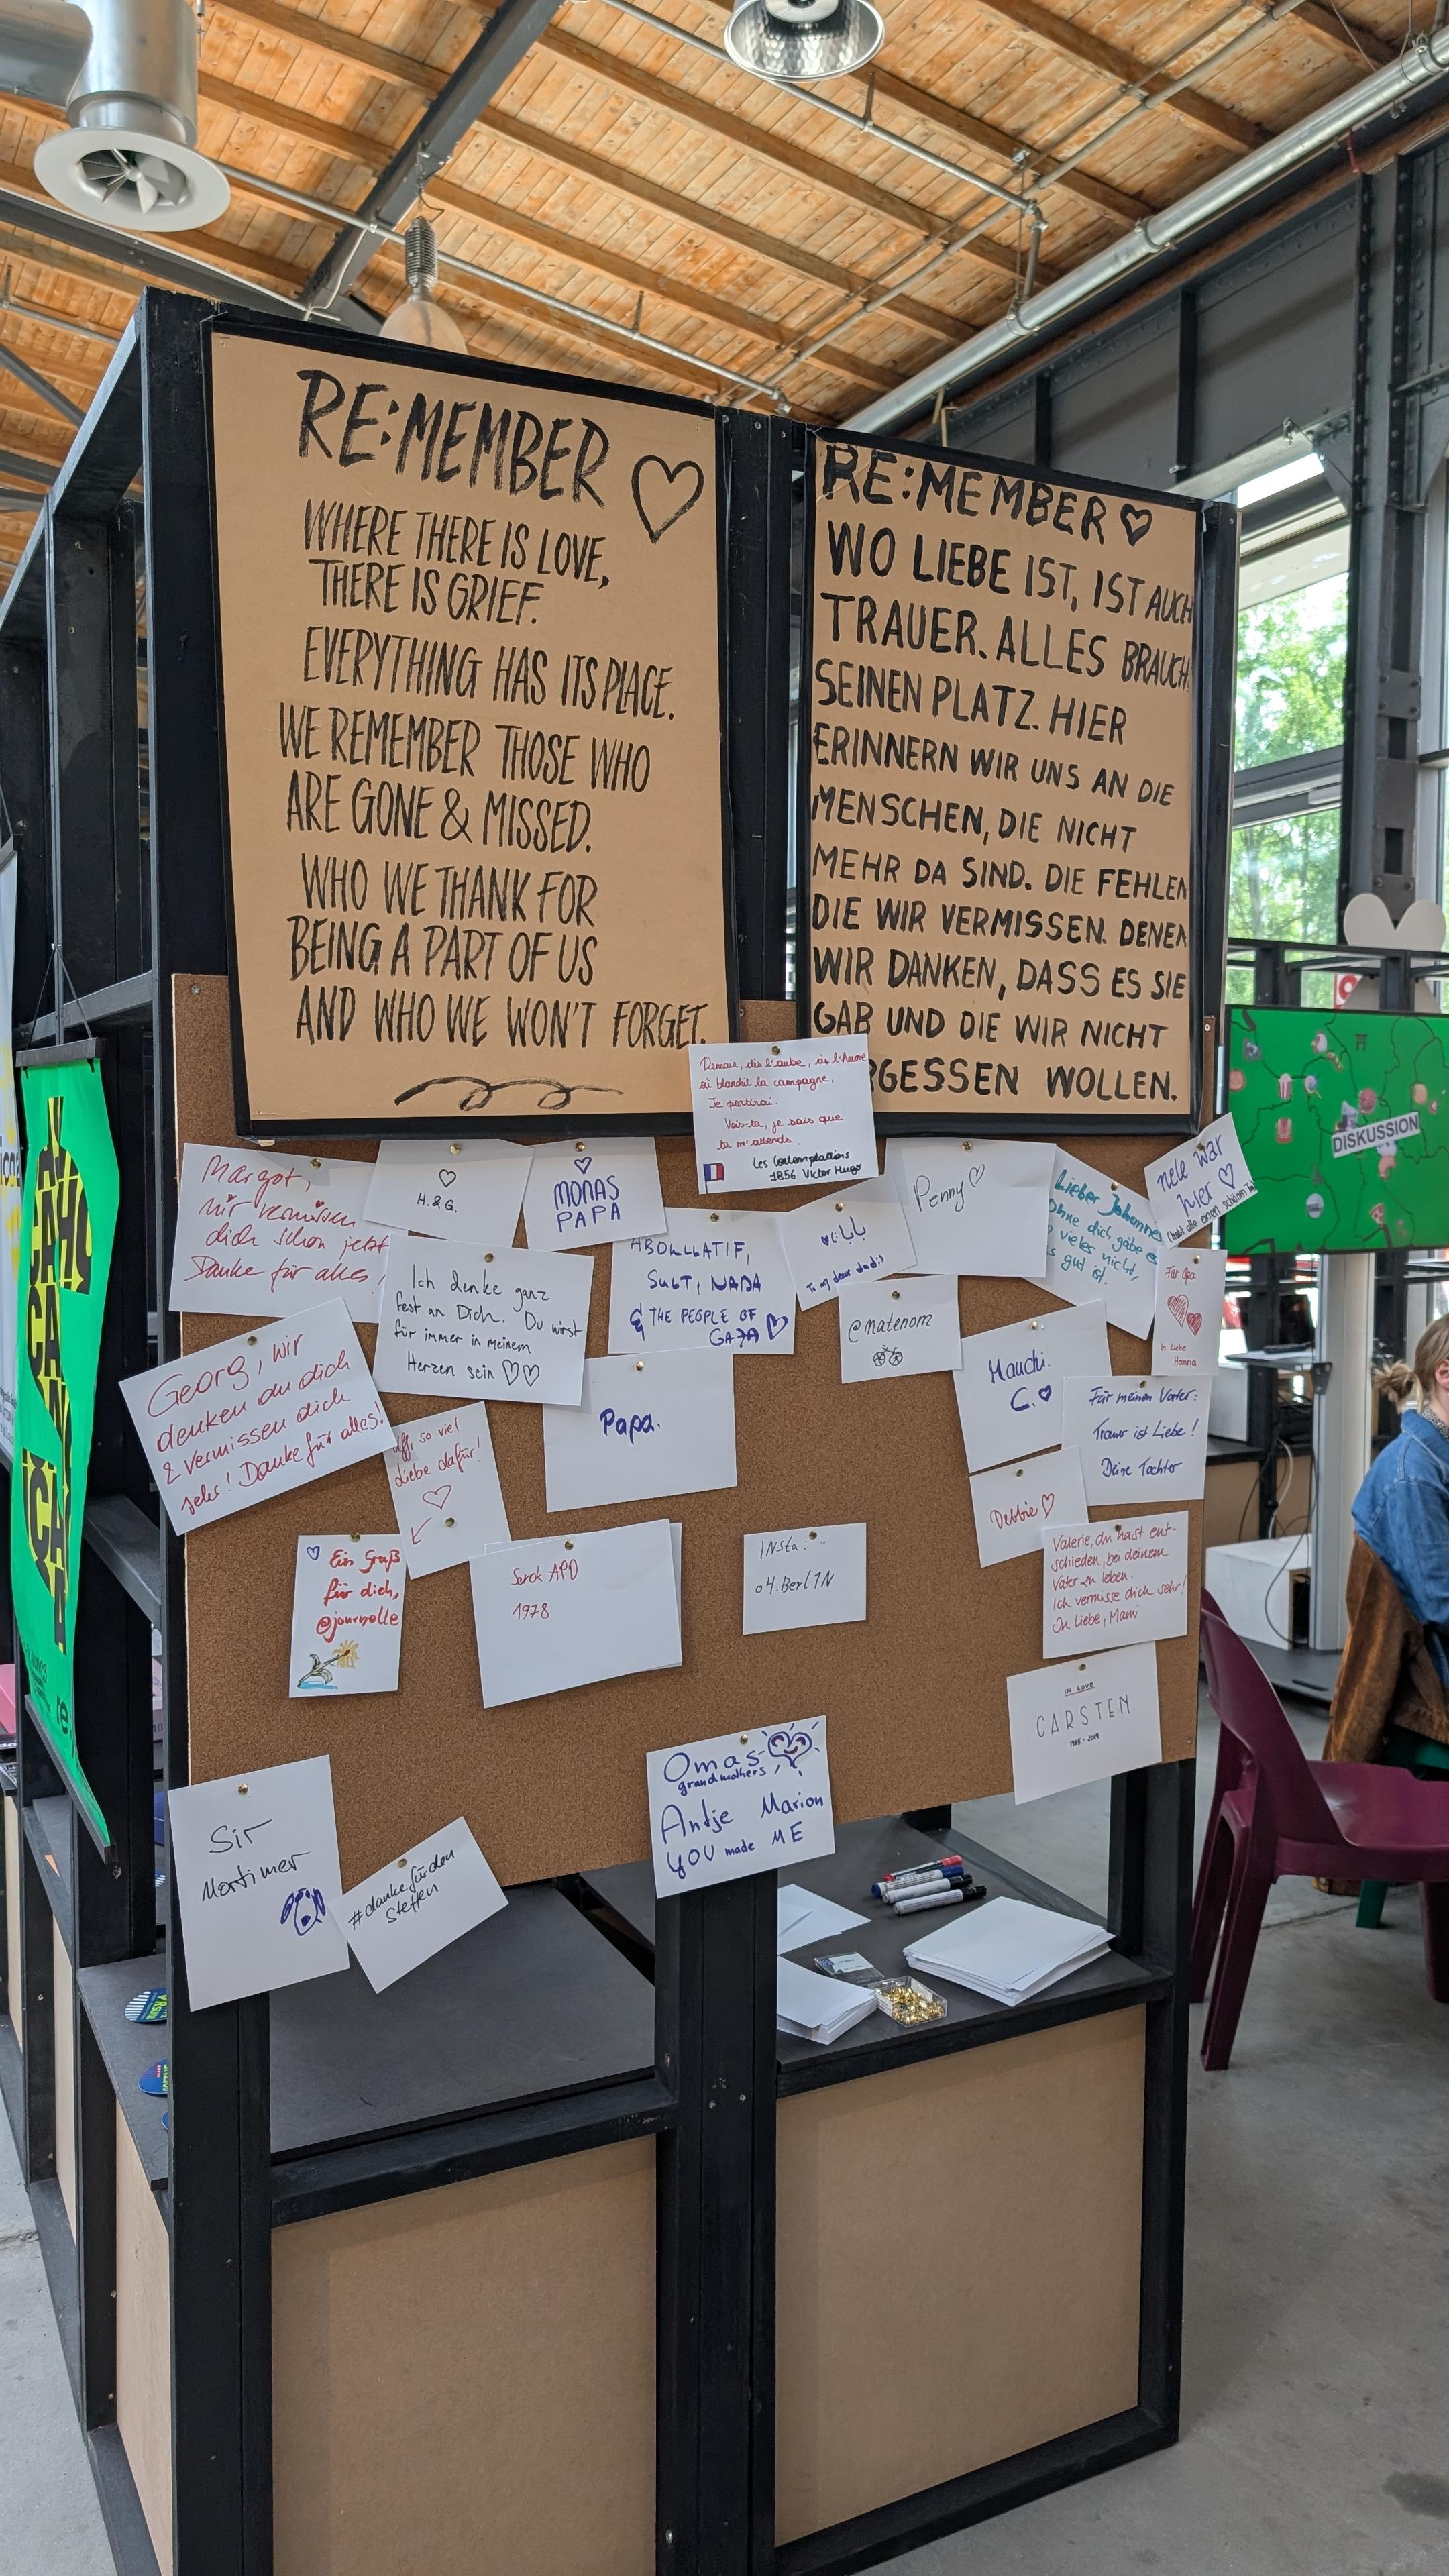 RE:MEMBER
WHERE THERE IS LOVE,
THERE IS GRIEF.
EVERYTHING HAS ITS PLACE.
WE REMEMBER THOSE WHO
ARE GONE & MISSED.
WHO WE THANK FOR
BEING A PART OF US
AND WHO WE WON'T FORGET.
RE:MEMBER
WO LIEBE IST, IST AUCH
TRAUER. ALLES BRAUCH
SEINEN PLATZ. HIER
ERINNERN WIR UNS AN DIE
MENSCHEN, DIE NICHT
MEHR DA SIND. DIE FEHLEN
DIE WIR VERMISSEN. DENEN
WIR DANKEN, DASS ES SIE
GAB UND DIE WIR NICHT
RGESSEN WOLLEN.
Demain, dès l'aube, à l'heure
où blanchit la campagne,
Je partirai.
Vois-tu, je sais que
tu m'attends.
Les Contemplations
1856 Victor Hugo
Margot,
wir vermissen
dich schon jetzt
Danke für alles!
H. & G.
MONAS
PAPA
ABDLLATIF,
NADA
& THE PEOPLE OF
GAZA
بابا
To my dear dad
Penny
Lieber Johannes
Ohne dich gäbe es
so vieles nicht,
das gut ist.
nele war
hier
Ich denke ganz
fest an Dich. Du wirst
für immer in meinem
Herzen sein
@natenom
Für Opa
In Liebe
Hanna
Georg, wir
denken an dich
& vermissen dich
sehr! Danke für alles!
Uff, so viel
Liebe dafür!
Papa.
Mauchi.
C.
Für meinen Vater:
Trauer ist Liebe!
Deine Tochter
Debbie
Valerie, du hast ent-
schieden, bei deinem
Vater zu leben.
Ich vermisse dich sehr!
In Liebe, Mami
Ein Gruß
für dich,
@journelle
Serok APO
1978
INsta:
o4.Berl1N
IN LOVE
CARSTEN
Omas
grandmothers
Antje Marion
YOU made ME
Sir
Mortimer
#dankefürden
Steffen
DISKUSSION